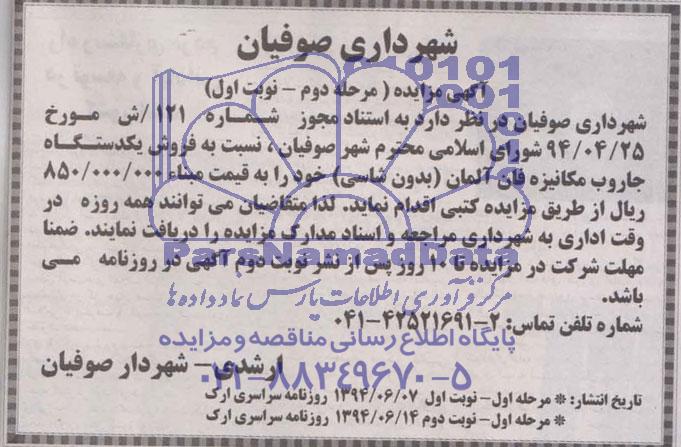 شهرداری صوفیان
آگهی مزایده ( مرحله دوم - نوبت اول)
شهرداری صوفیان در نظر دارد به استناد مجوز شماره ۱۲۱ /ش مورخ
۹۴/۰۴/۲۵ شورای اسلامی محترم شهر صوفیان ، نسبت به فروش یکدستگاه
جاروب مکانیزه فان آلمان (بدون شاسی) خود را به قیمت مبناء ۸۵۰/۰۰۰/۰۰۰
ریال از طریق مزایده کتبی اقدام نماید. لذا متقاضیان می توانند همه روزه در
وقت اداری به شهرداری مراجعه و اسناد مدارک مزایده را دریافت نمایند. ضمنا
ParsNamadData
مهلت شرکت در مزایده تا ۱۰ روز پس از نشر نوبت دوم آگهی در روزنامه می
باشد.
مرکز فرآوری اطلاعات پارس نماد داده ها
شماره تلفن تماس: ۲-۴۲۵۲۱۶۹۱-۰۴۱
پایگاه اطلاع رسانی مناقصه و مزایده
ارشدی - شهردار صوفیان
۰۲۱-۸۸۳۴۹۶۷۰-۵
تاریخ انتشار: * مرحله اول- نوبت اول ۱۳۹۴/۰۶/۰۷ روزنامه سراسری ارک
* مرحله اول- نوبت دوم ۱۳۹۴/۰۶/۱۴ روزنامه سراسری ارک